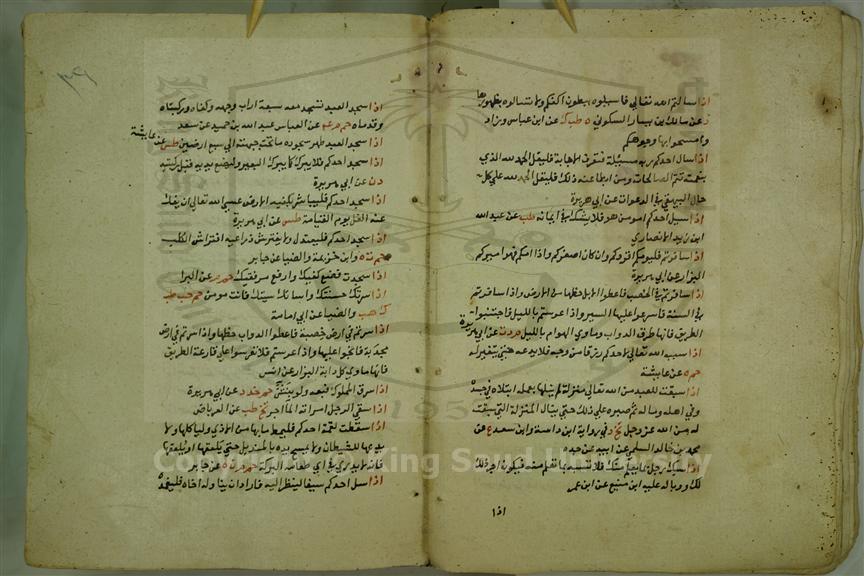 اذا سالتم الله تعالى فاسئلوه ببطون اكفكم ولا تسالوه بظهورها
د عن مالك بن يسار السكوني ه طب ك عن ابن عباس وزاد
وامسحوا بها وجوهكم
اذا سال احدكم ربه مسئلة فتعرف الاجابة فليقل الحمد لله الذي
بنعمته تتم الصالحات ومن ابطا عنه ذلك فليقل الحمد لله على كل
حال البيهقي في الدعوات عن ابي هريرة
اذا سيل احدكم امومن هو فلا يشك في ايمانه طب عن عبد الله
ابن زيد الانصاري
اذا سافرتم فليؤمكم اقروكم وان كان اصغركم واذا امكم فهو اميركم
البزار عن ابي هريرة
اذا سافرتم في الخصب فاعطوا الابل حظها من الارض واذا سافرتم
في السنة فاسرعوا عليها السير واذا عرستم بالليل فاجتنبوا
الطريق فانها طرق الدواب وماوى الهوام بالليل م د ت عن ابي هريرة
اذا سبب الله تعالى لاحدكم رزقا من وجه فلا يدعه حتى يتغير له
حم ه عن عايشة
اذا سبقت للعبد من الله تعالى منزلة لم ينلها بعمله ابتلاه في جسده
وفي اهله وماله ثم صبره على ذلك حتى ينال المنزلة التي سبقت
له من الله عز وجل تخ د في رواية ابن داسة وابن سعد ع عن
محمد بن خالد السلمي عن ابيه عن جده
اذا سبك رجل بما يعلم منك فلا تسبه بما تعلم منه فيكون اجر ذلك
لك ووباله عليه ابن منيع عن ابن عمر
اذا
اذا سجد العبد سجد معه سبعة اراب وجهه وكفاه وركبتاه
وقدماه حم م عن العباس عبد الله بن حميد عن سعد
اذا سجد العبد طهر سجوده ما تحت جبهته الى سبع ارضين طس عن عايشة
اذا سجد احدكم فلا يبرك كما يبرك البعير وليضع يديه قبل ركبتيه
د ن عن ابي هريرة
اذا سجد احدكم فليباشر بكفيه الارض عسى الله تعالى ان يفك
عنه الغل يوم القيامة طس عن ابي هريرة
اذا سجد احدكم فليعتدل ولا يفترش ذراعيه افتراش الكلب
حم ت ه وابن خزيمة والضيا عن جابر
اذا سجدت فضع كفيك وارفع مرفقيك حم م عن البرا
اذا سرتك حسنتك واساتك سيتك فانت مومن حم حب طب
ك هب والضيا عن ابي امامة
اذا سرتم في ارض خصبة فاعطوا الدواب حظها واذا سرتم في ارض
مجدبة فانجوا عليها واذا عرستم فلا تعرسوا على قارعة الطريق
فانها ماوى كل دابة البزار عن انس
اذا سرق المملوك فبعه ولو بنش حم خد د عن ابي هريرة
اذا سقى الرجل امراته الماء اجر تخ طب عن العرباض
اذا سقطت لقمة احدكم فليمط ما بها من الاذى ولياكلها ولا
يدعها للشيطان ولا يمسح يده بالمنديل حتى يلعقها او يلعقها
فانه لا يدري في اي طعامه البركة حم م ن ه عن جابر
اذا سل احدكم سيفا لينظر اليه فاراد ان يناوله اخاه فليغمده